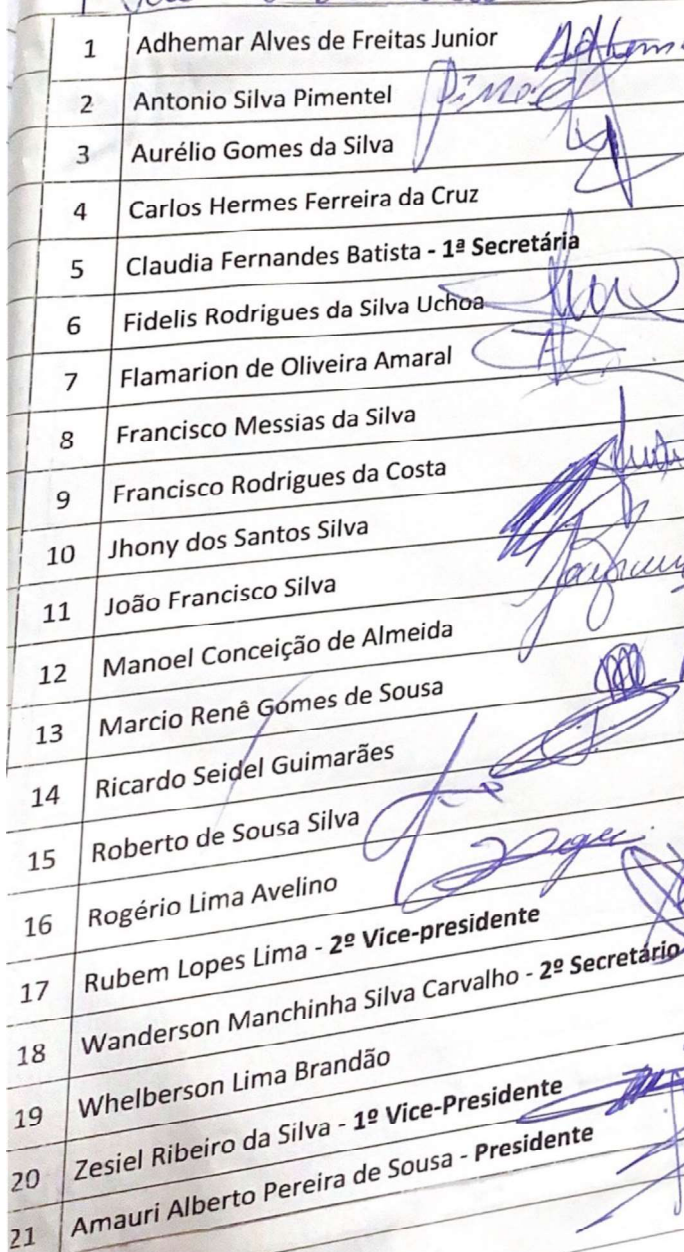 1 Adhemar Alves de Freitas Junior
2 Antonio Silva Pimentel
3 Aurélio Gomes da Silva
4 Carlos Hermes Ferreira da Cruz
5 Claudia Fernandes Batista - 1ª Secretária
6 Fidelis Rodrigues da Silva Uchoa
7 Flamarion de Oliveira Amaral
8 Francisco Messias da Silva
9 Francisco Rodrigues da Costa
10 Jhony dos Santos Silva
11 João Francisco Silva
12 Manoel Conceição de Almeida
13 Marcio Renê Gomes de Sousa
14 Ricardo Seidel Guimarães
15 Roberto de Sousa Silva
16 Rogério Lima Avelino
17 Rubem Lopes Lima - 2º Vice-presidente
18 Wanderson Manchinha Silva Carvalho - 2º Secretário
19 Whelberson Lima Brandão
20 Zesiel Ribeiro da Silva - 1º Vice-Presidente
21 Amauri Alberto Pereira de Sousa - Presidente